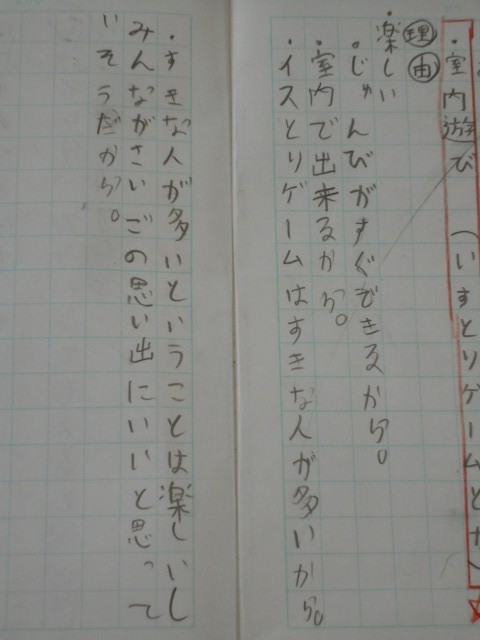 ・室内遊び （いすとりゲームとか）
理由
・楽しい
・じゅんびがすぐできるから。
・室内で出来るから。
・イスとりゲームはすきな人が多いから。
・すきな人が多いということは楽しいし
みんながさいごの思い出にいいと思って
いそうだから。